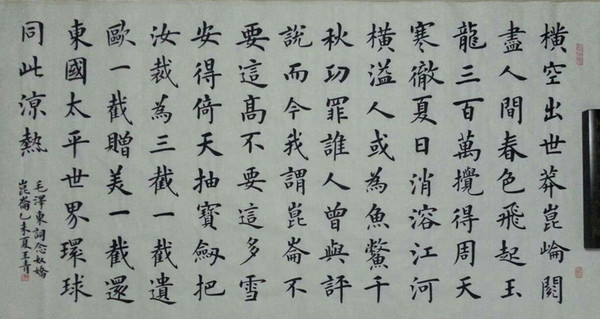 橫空出世莽崑崘閱
盡人間春色飛起玉
龍三百萬攪得周天
寒徹夏日消溶江河
橫溢人或為魚鱉千
秋功罪誰人曾與評
說而今我謂崑崙不
要這高不要這多雪
安得倚天抽寶劔把
汝裁為三截一截遺
歐一截贈美一截還
東國太平世界環球
同此涼熱
毛澤東詞念奴嬌
崑崙乙未夏王